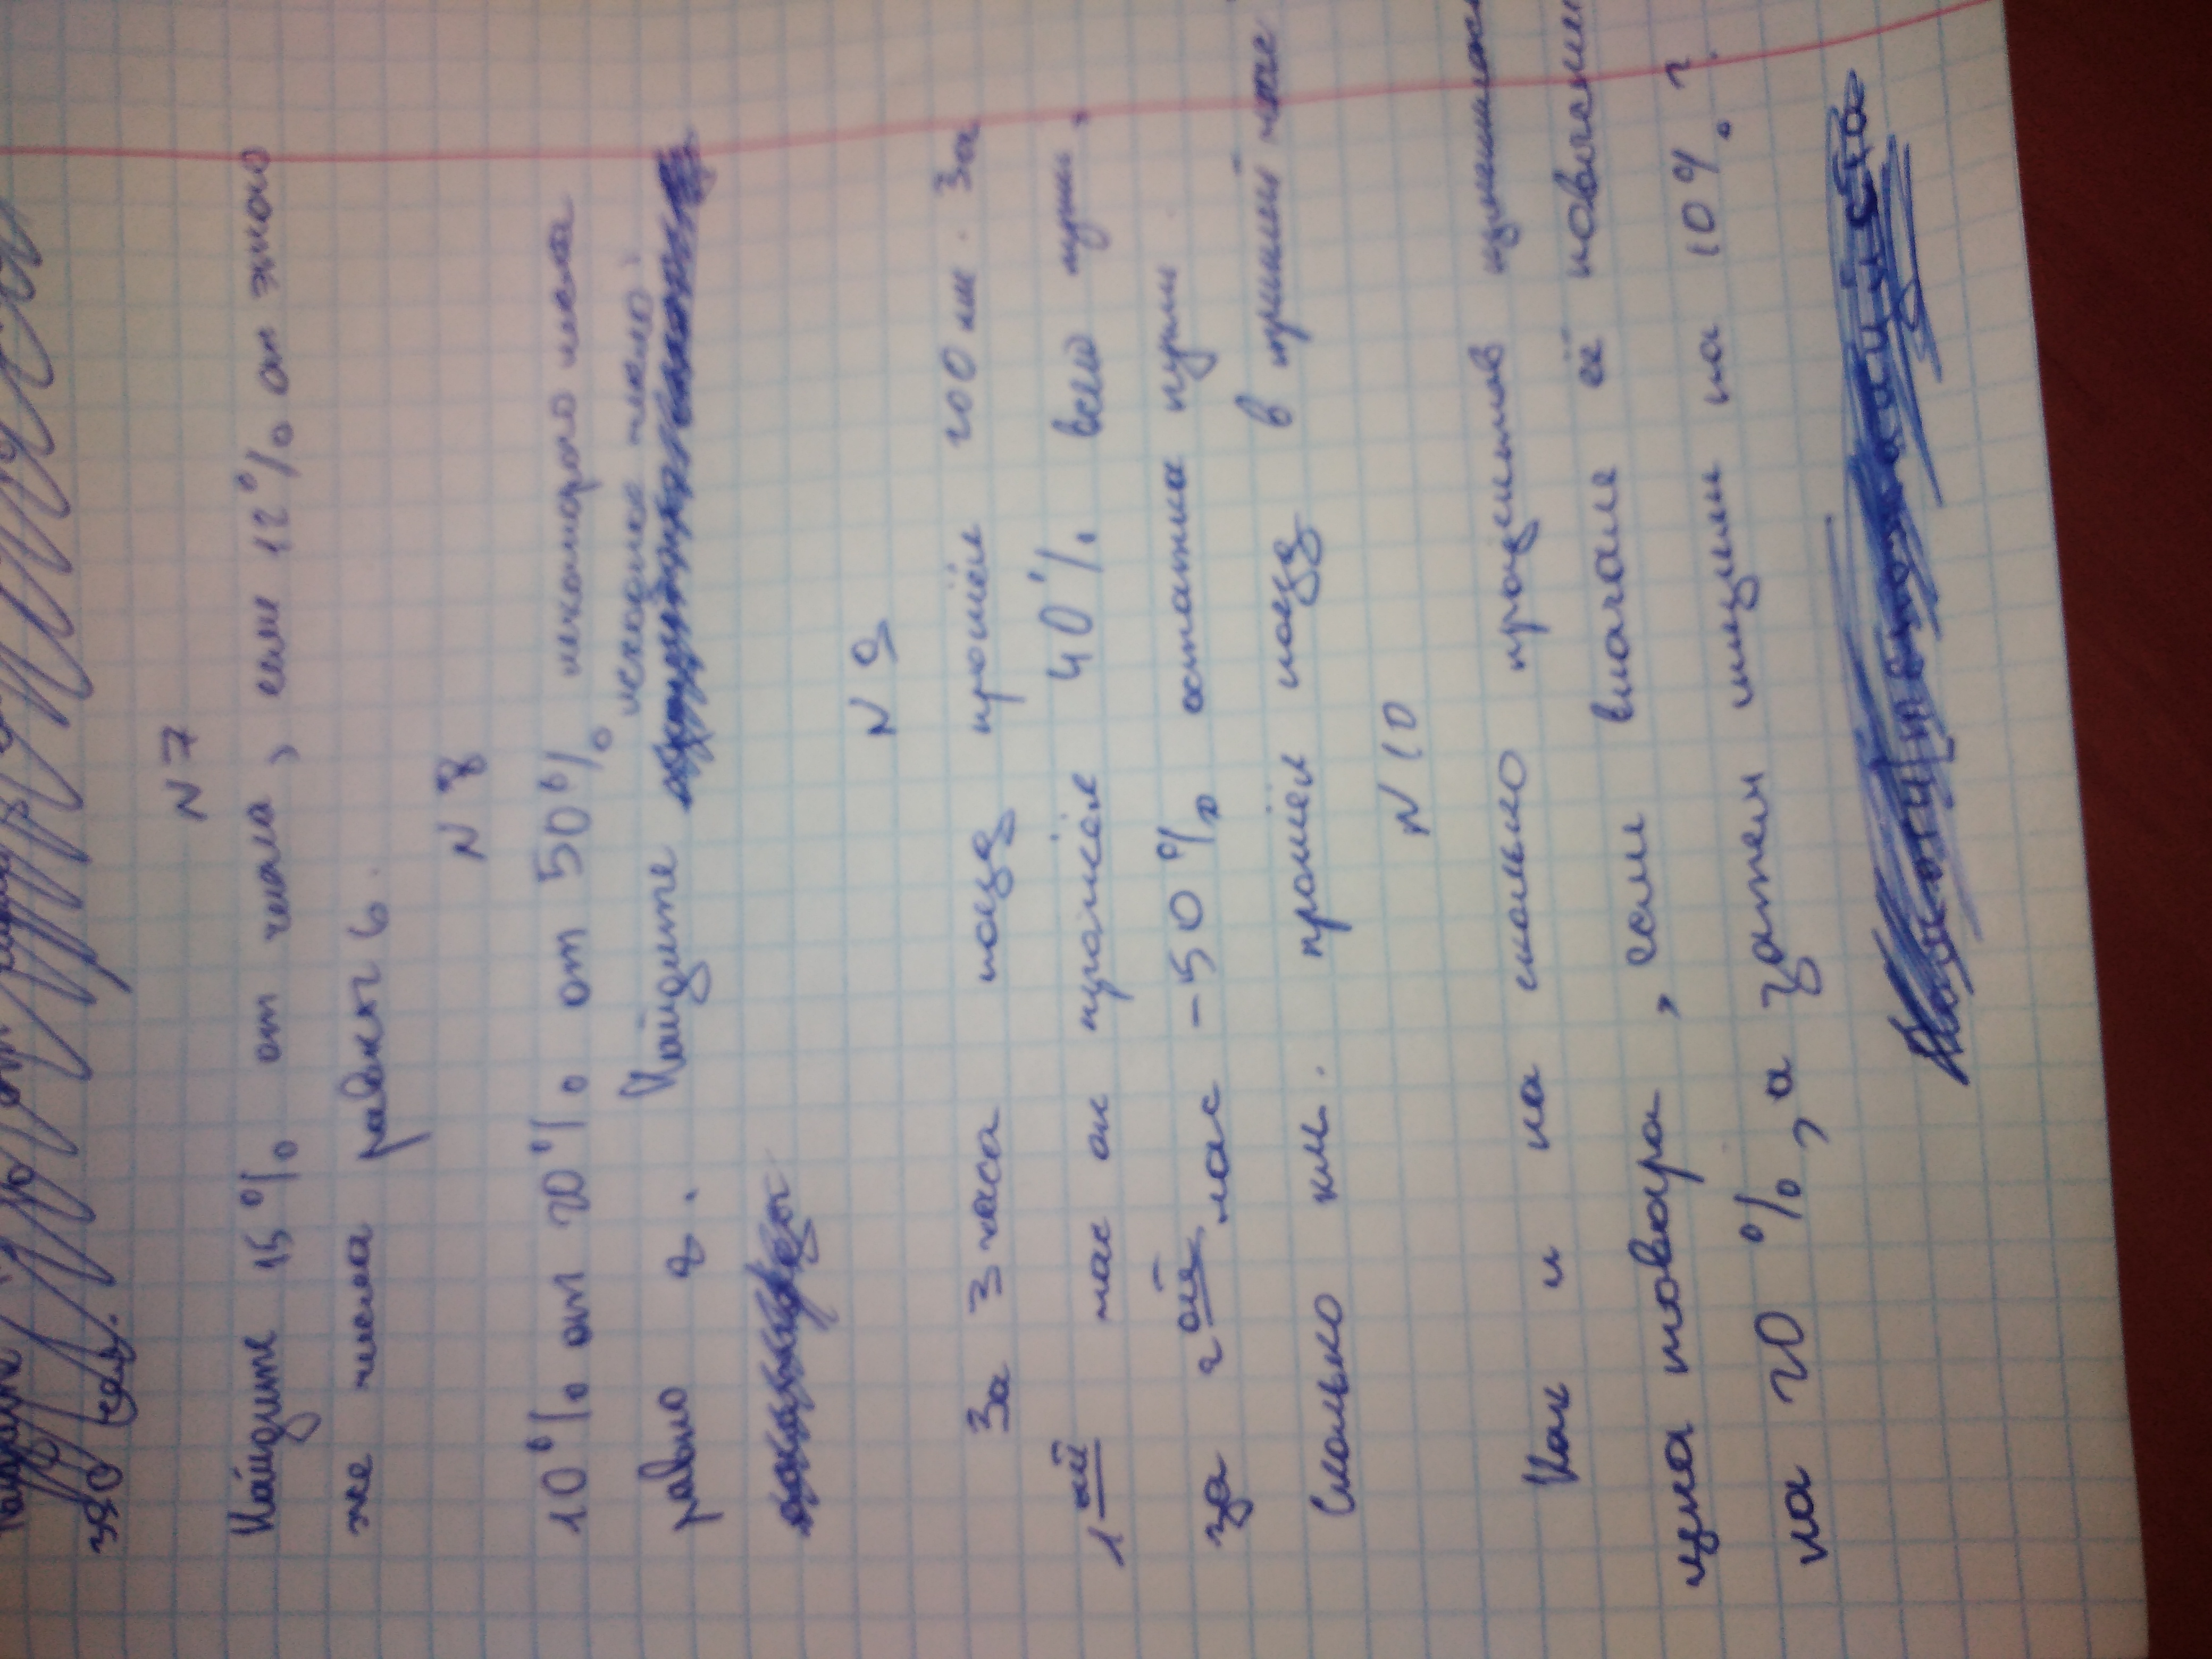 380 чел.
N 7
Найдите 15% от числа, если 12% от этого
же числа равны 6.
N 8
10% от 20% от 50% некоторого числа
равно 2. Найдите искомое число.
N 9
За 3 часа поезд прошёл 200 км. За
1ый час он прошёл 40% всего пути,
за 2ой час - 50% остатка пути
Сколько км. прошёл поезд в третий час
N 10
Как и на сколько процентов
цена товара, если вначале её
на 20%, а затем на 10%?